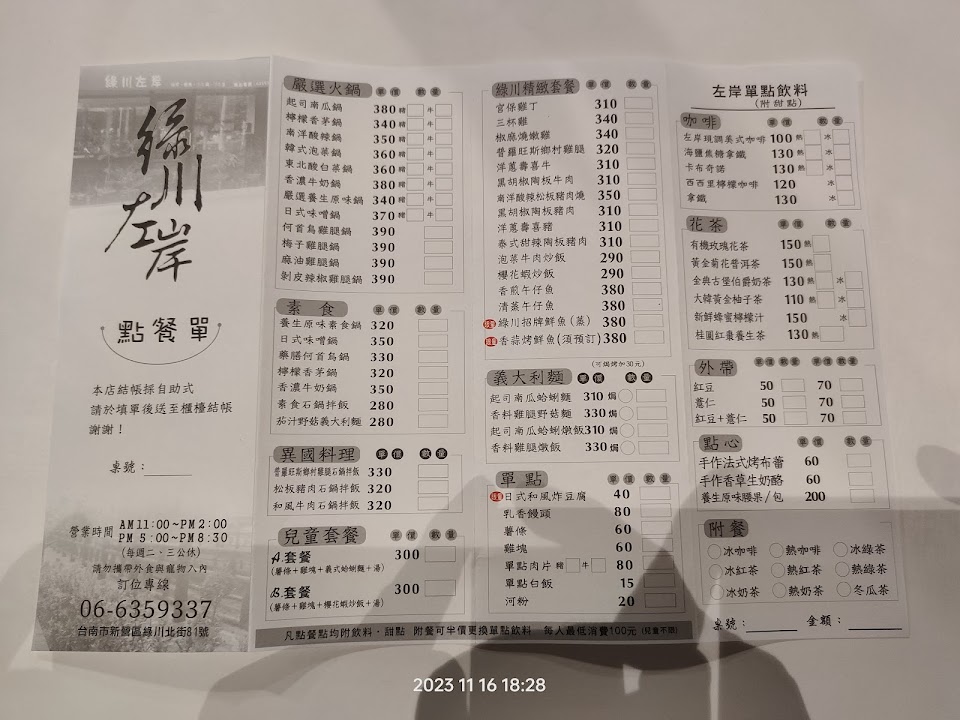 綠川左岸
綠川左岸
點餐單
本店結帳採自助式
請於填單後送至櫃檯結帳
謝謝！
桌號：
營業時間 AM 11:00~PM 2:00
PM 5:00~PM 8:30
(每週二、三公休)
請勿攜帶外食與寵物入內
訂位專線
06-6359337
台南市新營區綠川北街81號
嚴選火鍋 單價 數量
起司南瓜鍋 380 豬 牛
檸檬香茅鍋 340 豬 牛
南洋酸辣鍋 350 豬 牛
韓式泡菜鍋 360 豬 牛
東北酸白菜鍋 360 豬 牛
香濃牛奶鍋 380 豬 牛
嚴選養生原味鍋 340 豬 牛
日式味噌鍋 370 豬 牛
何首烏雞腿鍋 390
梅子雞腿鍋 390
麻油雞腿鍋 390
剝皮辣椒雞腿鍋 390
素食 單價 數量
養生原味素食鍋 320
日式味噌鍋 350
藥膳何首烏鍋 330
檸檬香茅鍋 320
香濃牛奶鍋 350
素食石鍋拌飯 280
茄汁野菇義大利麵 280
異國料理 單價 數量
普羅旺斯鄉村雞腿石鍋拌飯 330
松板豬肉石鍋拌飯 320
和風牛肉石鍋拌飯 320
兒童套餐 單價 數量
A.套餐 300
(薯條+雞塊+義式蛤蜊麵+湯)
B.套餐 300
(薯條+雞塊+櫻花蝦炒飯+湯)
綠川精緻套餐 單價 數量
宮保雞丁 310
三杯雞 340
椒麻燒嫩雞 340
普羅旺斯鄉村雞腿 320
洋蔥壽喜牛 310
黑胡椒陶板牛肉 310
南洋酸辣松板豬肉燒 350
黑胡椒陶板豬肉 310
洋蔥壽喜豬 310
泰式甜辣陶板豬肉 310
泡菜牛肉炒飯 290
櫻花蝦炒飯 290
香煎牛仔魚 380
清蒸牛仔魚 380
綠川招牌鮮魚(蒸) 380
香蒜烤鮮魚(須預訂) 380
(可焗烤加30元)
義大利麵 單價 數量
起司南瓜蛤蜊麵 310 焗
香料雞腿野菇麵 330 焗
起司南瓜蛤蜊燉飯 310 焗
香料雞腿燉飯 330 焗
單點 單價 數量
日式和風炸豆腐 40
乳香饅頭 80
薯條 60
雞塊 60
單點肉片 豬 牛 80
單點白飯 15
河粉 20
左岸單點飲料
(附甜點)
咖啡 單價 數量
左岸現調美式咖啡 100 熱 冰
海鹽焦糖拿鐵 130 熱 冰
卡布奇諾 130 熱 冰
西西里檸檬咖啡 120 冰
拿鐵 130 熱 冰
花茶 單價 數量
有機玫瑰花茶 150 熱
黃金菊花普洱茶 150 熱
金典古堡伯爵奶茶 130 熱 冰
大韓黃金柚子茶 110 熱 冰
新鮮蜂蜜檸檬汁 150 冰
桂圓紅棗養生茶 130 熱
外帶 單價 數量 單價 數量
紅豆 50 70
薏仁 50 70
紅豆+薏仁 50 70
點心 單價 數量
手作法式烤布蕾 60
手作香草生奶酪 60
養生原味腰果/包 200
附餐
冰咖啡 熱咖啡 冰綠茶
冰紅茶 熱紅茶 熱綠茶
冰奶茶 熱奶茶 冬瓜茶
桌號： 金額：
凡點餐點均附飲料、甜點 附餐可半價更換單點飲料 每人最低消費100元 (兒童不限)
2023 11 16 18:28